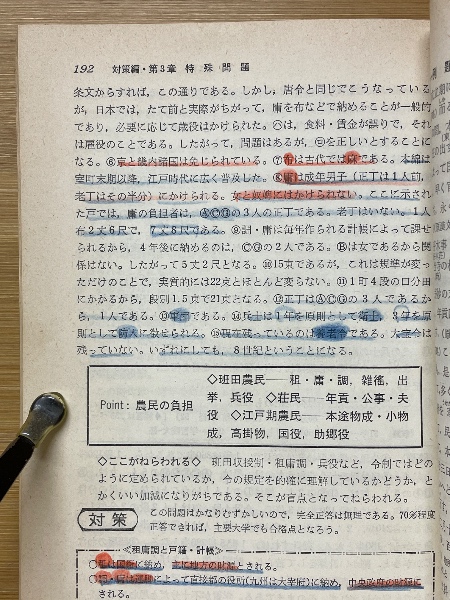 192 対策編・第3章 特殊問題
条文からすれば、この通りである。しかし、唐令と同じでこうなっている
が、日本では、たて前と実際がちがって、庸を布などで納めることが一般的
であり、必要に応じて歳役はかけられた。㋩は、食料・賃金が誤りで、それ
は雇役のことである。したがって、問題はあるが、㋥を正しいとすることに
なる。⑥京と畿内諸国は免じられている。⑦布は古代では麻である。木綿は
室町末期以降、江戸時代に広く普及した。⑧庸は成年男子（正丁は1人前、
老丁はその半分）にかけられる。女と奴婢にはかけられない。ここに示され
た戸では、庸の負担者は、ⒶⒸⒼの3人の正丁である。老丁はいない。1人
布2丈6尺で、7丈8尺である。⑨調・庸は毎年作られる計帳によって課せ
られるから、4年後に納めるのは、ⒸⒼの2人である。Ⓑは女であるから関
係はない。したがって5丈2尺となる。⑩15束であるが、これは規準が変っ
ただけのことで、実質的には22束とほとんど変らない。⑪1町4段の口分田
にかかるから、段別1.5束で21束となる。⑫正丁はⒶⒸⒼの3人であるか
ら、1人である。⑬軍団である。⑭兵士は1年を原則として衛士、3年を原
則として防人に徴せられる。⑮現在残っているのは養老令である。大宝令は
残っていない。いずれにしても、8世紀ということになる。
Point：農民の負担
◇班田農民──租・庸・調，雑徭，出
挙，兵役 ◇荘民──年貢・公事・夫
役 ◇江戸期農民──本途物成・小物
成，高掛物，国役，助郷役
◇ここがねらわれる◇ 班田収授制・租庸調・兵役など、令制ではどの
ように定められているか、今の規定を的確に理解しているかどうか、と
かくいい加減になりがちである。そこが盲点となってねらわれる。
対策
この問題はかなりむずかしいので、完全正答は無理である。70%程度
正答できれば、主要大学でも合格点となろう。
≪租庸調と戸籍・計帳≫
○租は国衙に納め、主に地方の財源とされる。
○調・庸は運脚によって直接都の役所（九州は大宰府）に納め、中央政府の財源に
される。